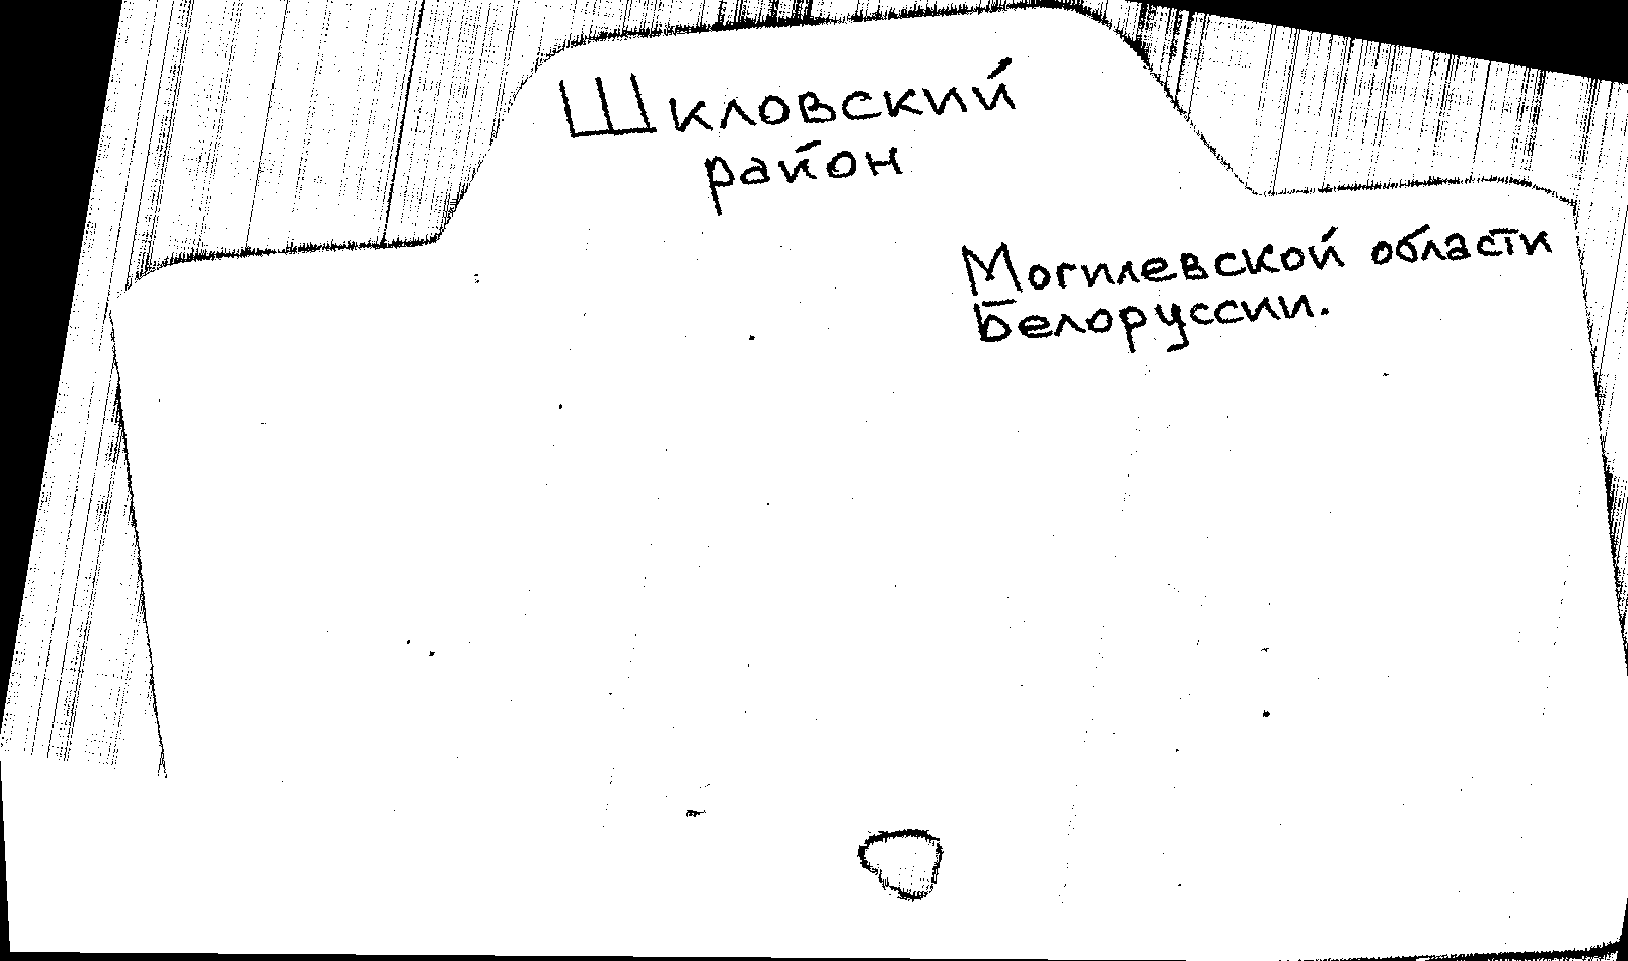 Шкловский
район
Могилевской области
Белоруссии.